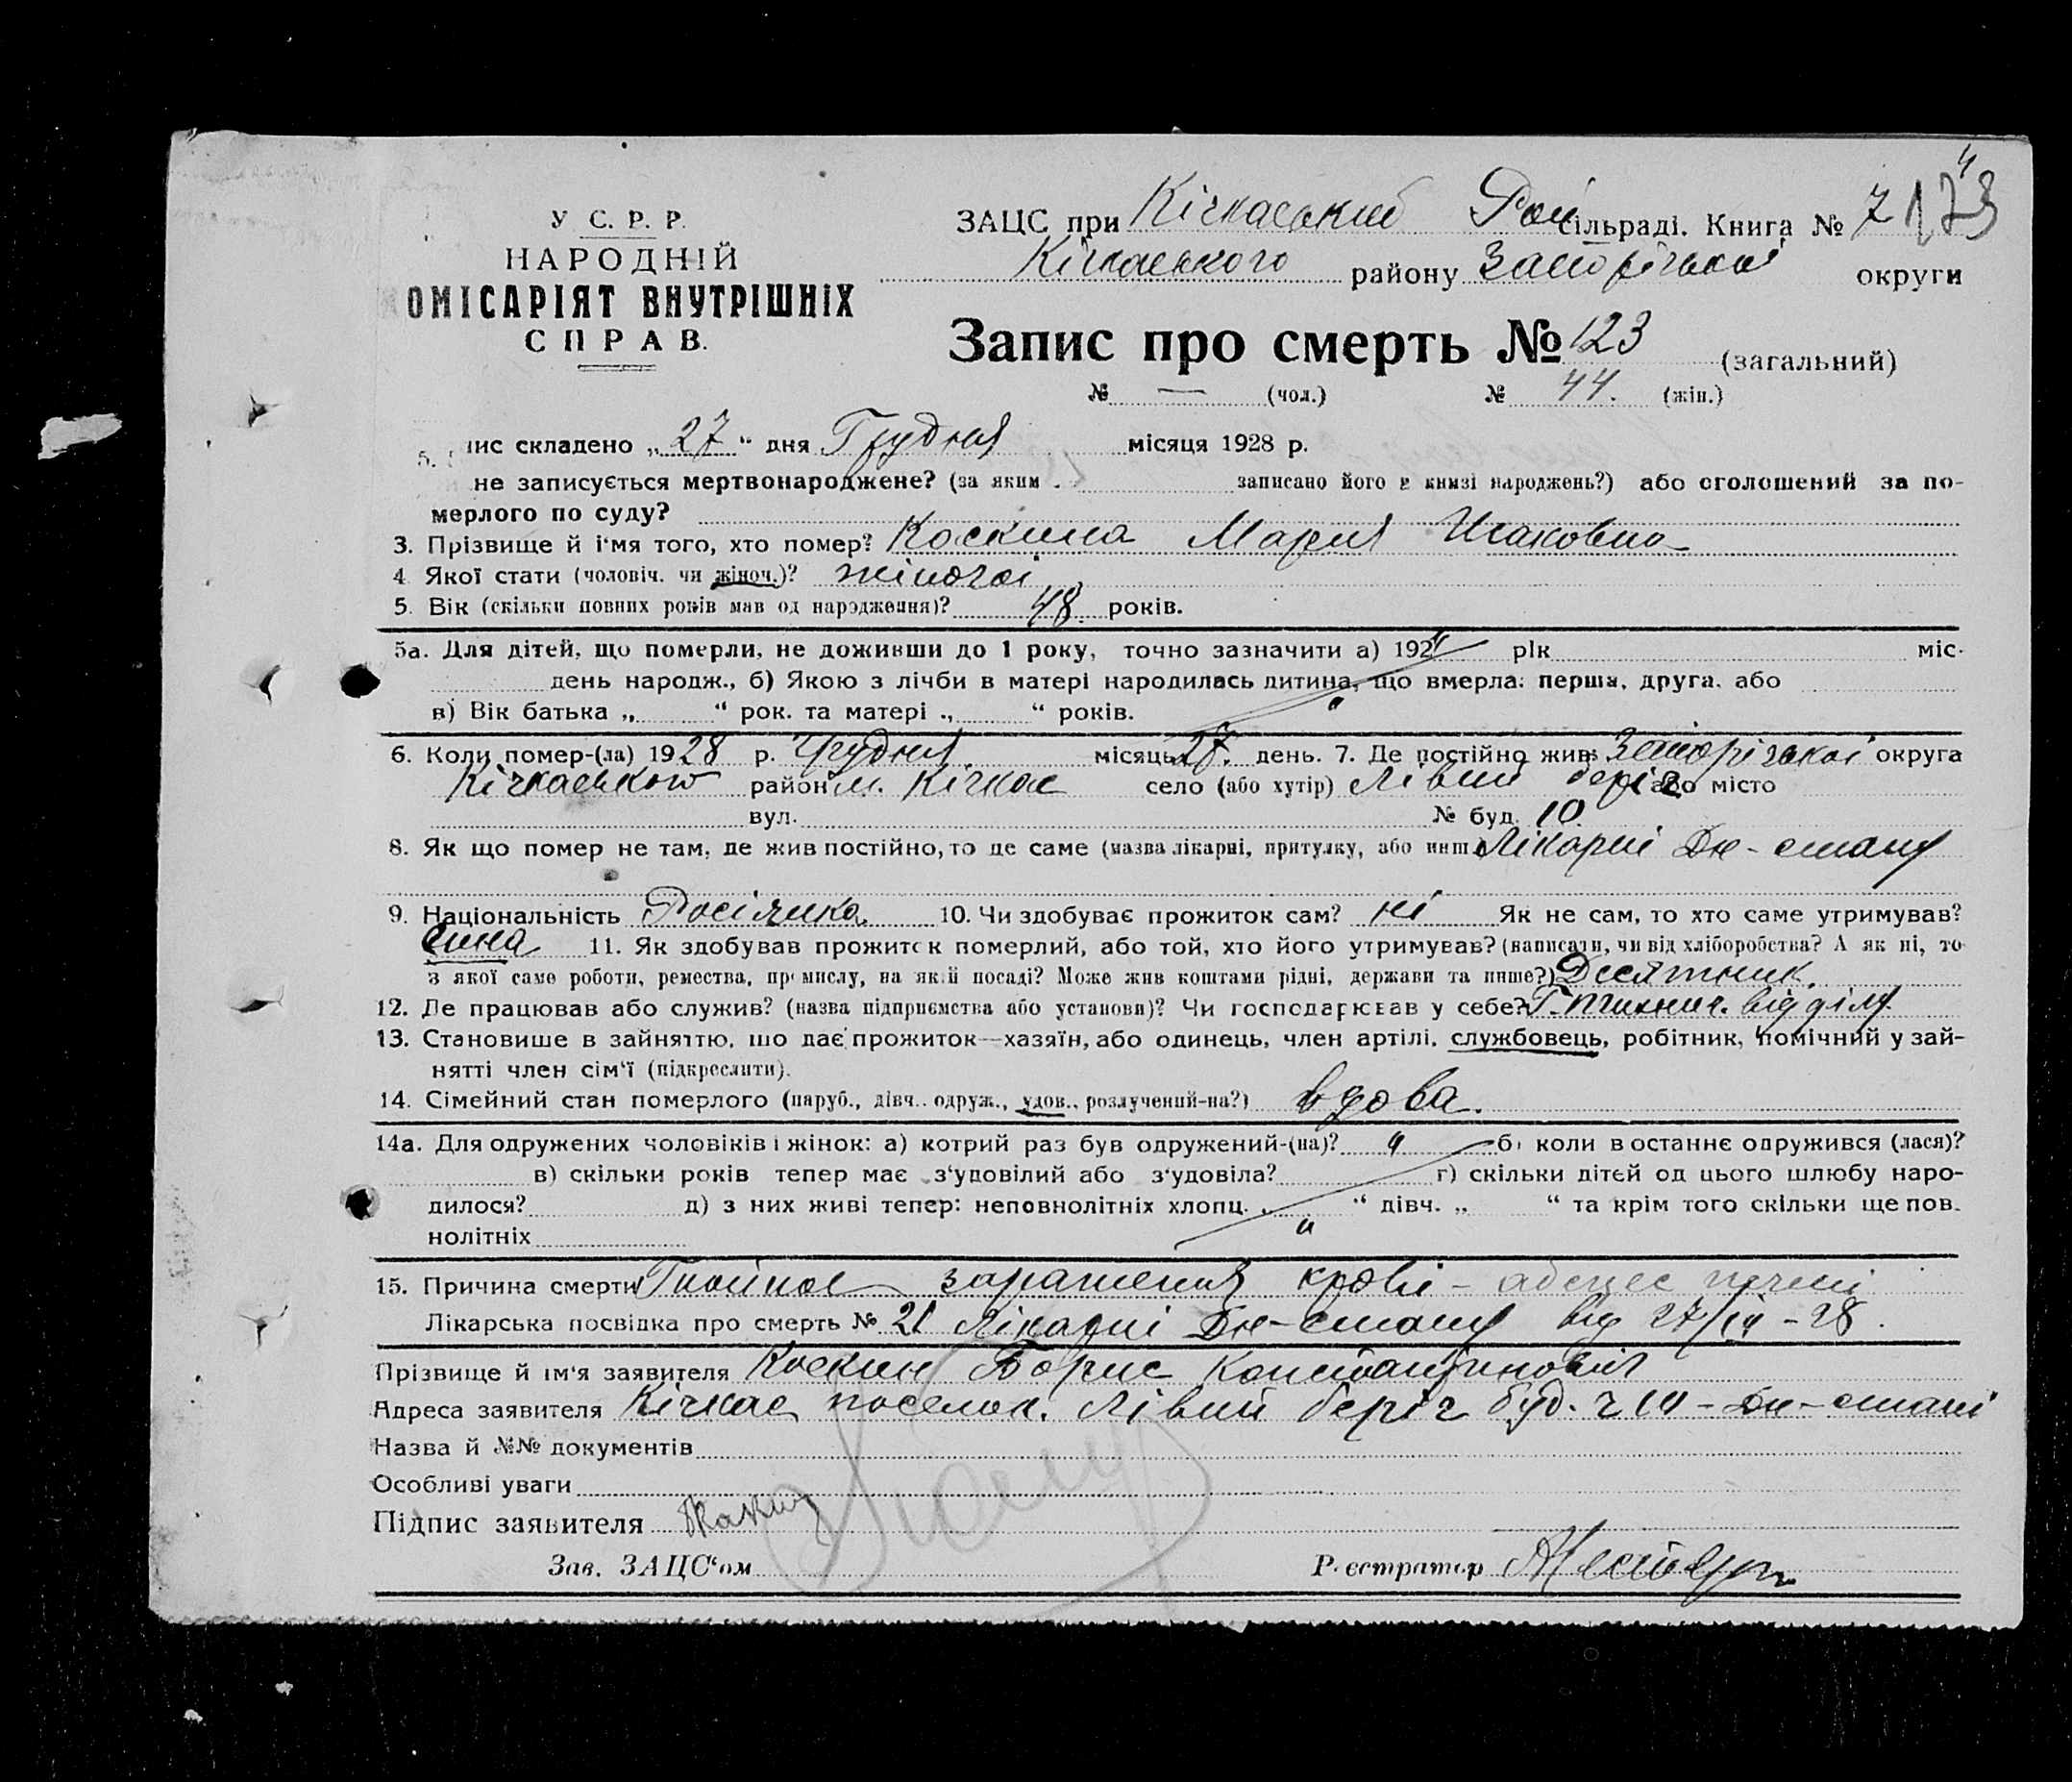 У С. Р. Р.
НАРОДНІЙ
ОМІСАРІЯТ ВНУТРІШНІХ
СПРАВ.
ЗАЦС при Кічкаський Рай сільраді. Книга № 7 173
Кічкаського району Запорізької округи
Запис про смерть № 123 (загальний)
№ — (чол.) № 44. (жін.)
ис складено „27“ дня Грудня місяця 1928 р.
не записується мертвонароджене? (за яким записано його в книзі народжень?) або оголошений за по-
мерлого по суду?
3. Прізвище й ім'я того, хто помер? Коскина Мария Исаковна
4 Якої стати (чоловіч. чи жіноч.)? жіночої
5. Вік (скільки повних років мав од народження)? 48 років.
5а. Для дітей, що померли, не доживши до 1 року, точно зазначити а) 192 рік міс.
день народж., б) Якою з лічби в матері народилась дитина, що вмерла: перша, друга, або
в) Вік батька „ “ рок. та матері „ “ років.
6. Коли помер-(ла) 1928 р. Грудня місяць 27. день. 7. Де постійно жив: Запорізької округа
Кічкаського район м. Кічкас село (або хутір) Лівий беріг або місто
вул. № буд. 10
8. Як що помер не там, де жив постійно, то де саме (назва лікарні, притулку, або инш.) Лікарні Дн-стану
9. Національність Росіянка 10. Чи здобував прожиток сам? ні Як не сам, то хто саме утримував?
сина 11. Як здобував прожиток померлий, або той, хто його утримував? (написати, чи від хліборобства? А як ні, то
з якої саме роботи, ремества, промислу, на якій посаді? Може жив коштами рідні, держави та инше?) Десятник.
12. Де працював або служив? (назва підприємства або установи)? Чи господарював у себе? відділу
13. Становище в зайняттю, що дає прожиток—хазяїн, або одинець, член артілі, службовець, робітник, помічний у зай-
нятті член сім'ї (підкреслити).
14. Сімейний стан померлого (паруб., дівч., одруж., удов., розлучений-на?) вдова.
14а. Для одружених чоловіків і жінок: а) котрий раз був одружений-(на)? б) коли востаннє одружився (лася)?
в) скільки років тепер має з'удовілий або з'удовіла? г) скільки дітей од цього шлюбу наро-
дилося? д) з них живі тепер: неповнолітніх хлопц. „ “ дівч. „ “ та крім того скільки ще пов.
нолітніх
15. Причина смерти Гнойное заражения крові - абсцес печені
Лікарська посвідка про смерть № 21 Лікарні Дн-стану від 27/ІІІ - 28.
Прізвище й ім'я заявителя Коскин Борис Константинович
Адреса заявителя Кічкас поселок. Лівий беріг буд. ч 10 - Дн-стані
Назва й №№ документів
Особливі уваги
Підпис заявителя
Зав. ЗАЦС'ом Реєстратор